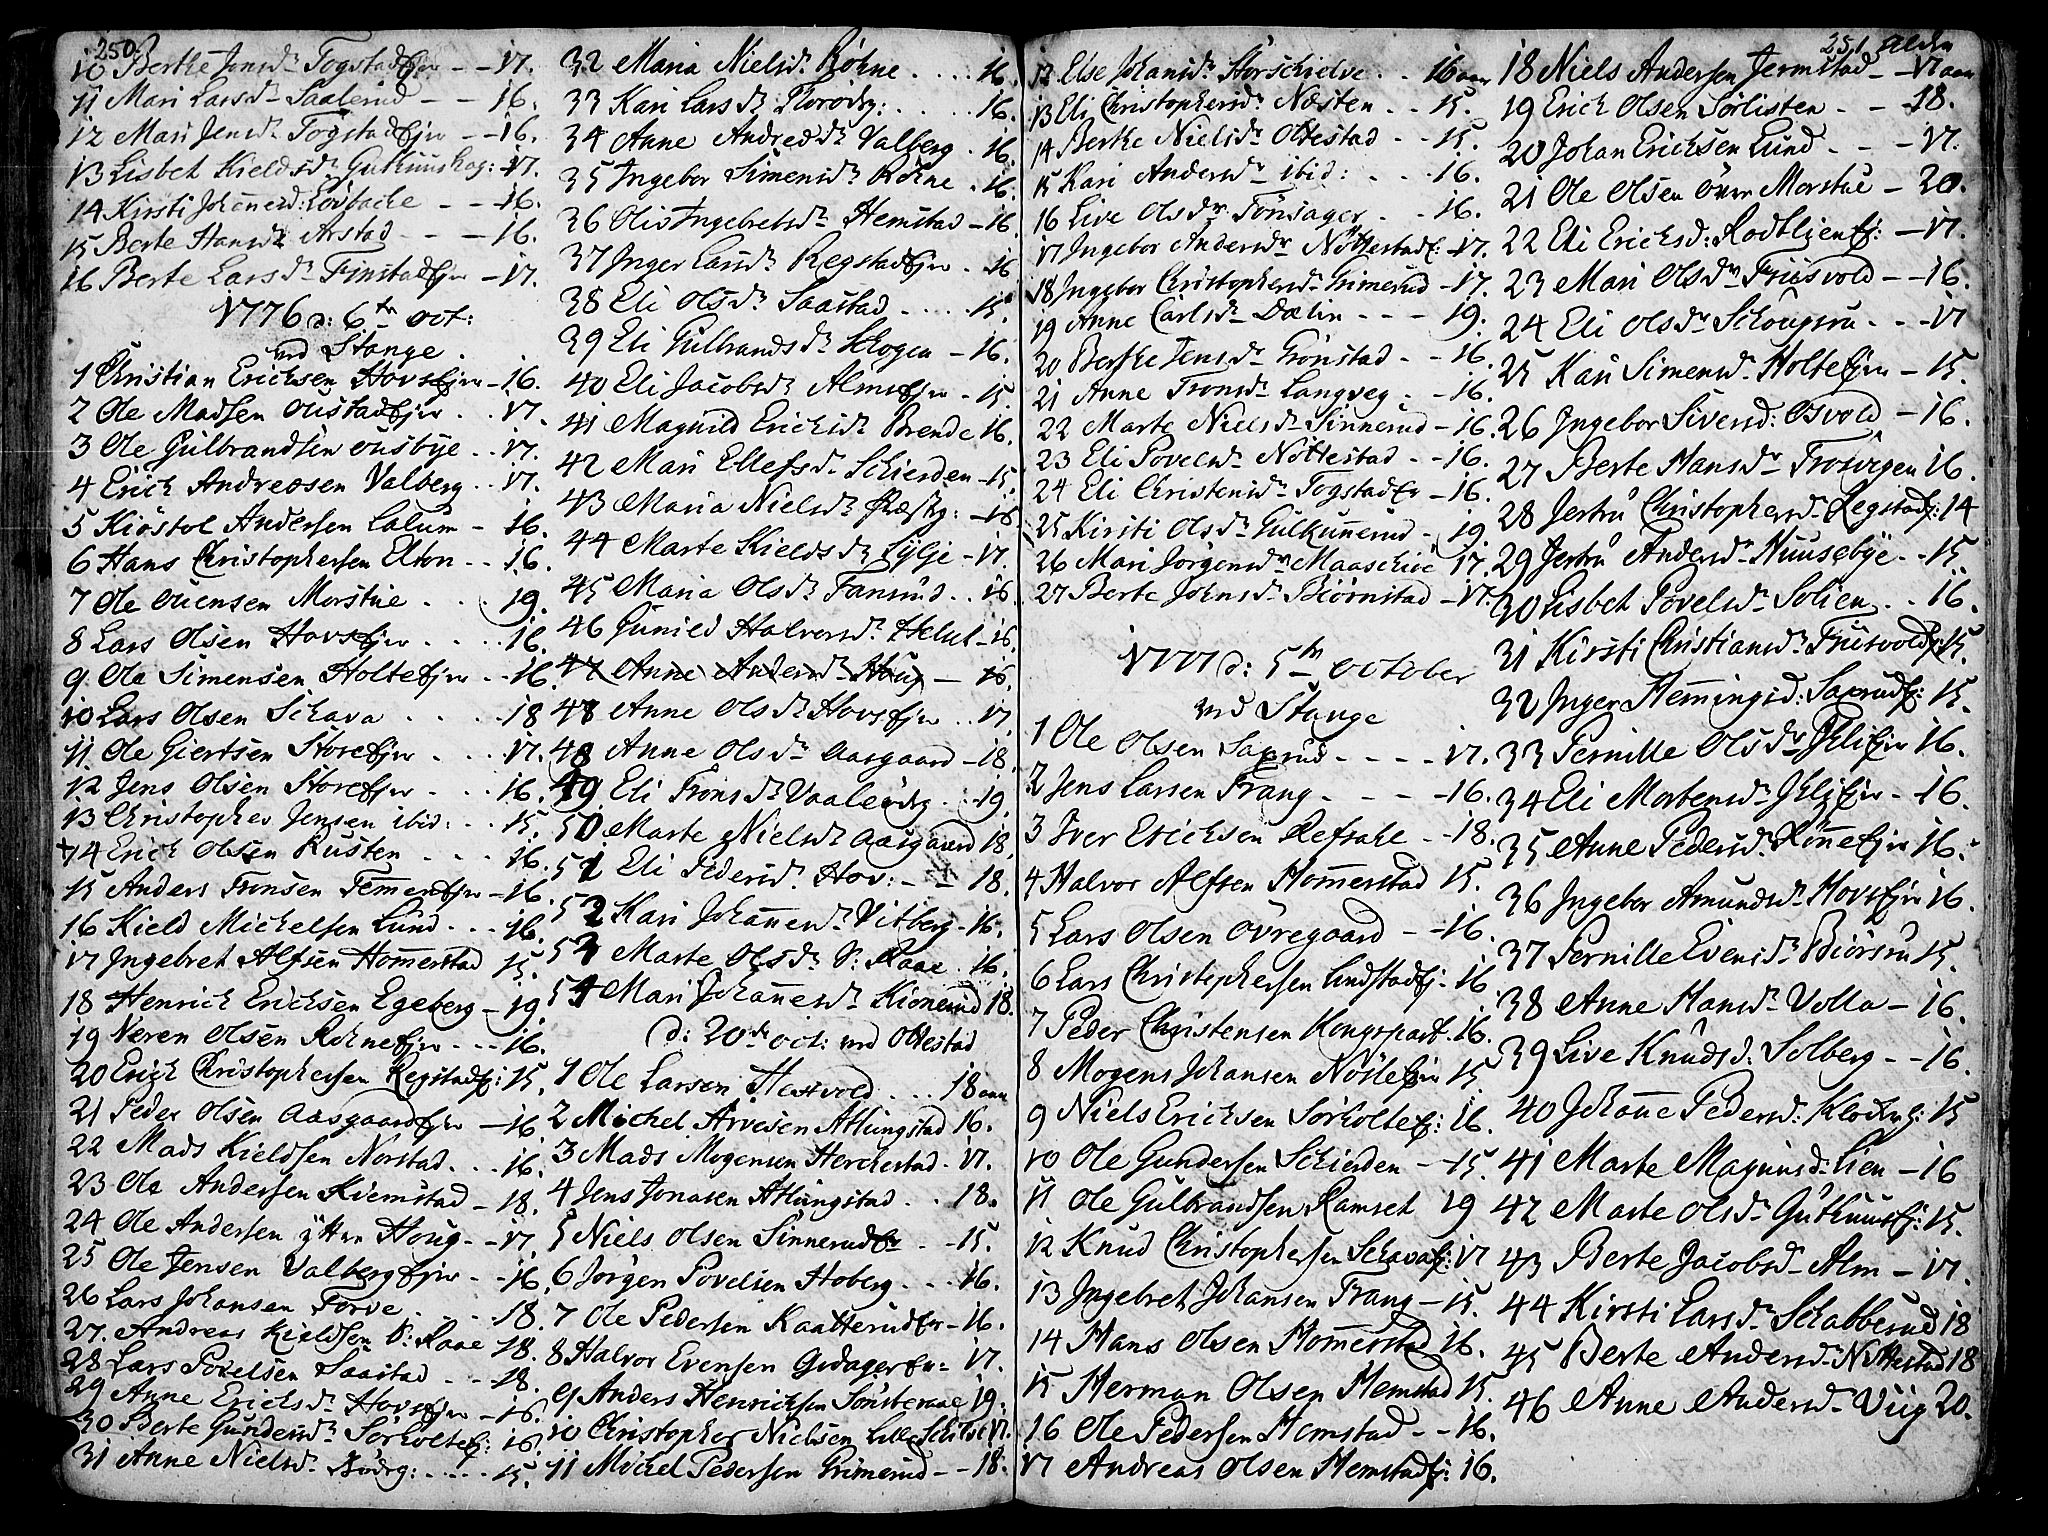 250.
10 Berthe Jonsdr. Togstadejer - - 17.
11 Mari Larsdr. Saalerud - - 16.
12 Mari Jensdr. Togstadejer - - 16.
13 Lisbet Kieldsdr. Guthuushag: - 17.
14 Kirsti Johanesd: Løvbache - - 16.
15 Berte Hansdr. Arstad - - - 16.
16 Berte Larsdr. Finstadejer - 17.
1776 d: 6te oct:
ved Stange.
1 Christian Ericksen Hovsejer - 16.
2 Ole Madsen oustadejer . . 17.
3 Ole Gulbrandsen ousbye . . 17.
4 Erich Andreasen Valberg . . 17.
5 Kiöstol Andersen Lalum - 16.
6 Hans Christophersen Elton . . 16.
7 Ole ouensen Morstue . . . 19.
8 Lars Olsen Hovsejer . . . 16.
9. Ole Simensen Holteejer . . 16.
10 Lars Olsen Schava . . . . 18
11. Ole Giertsen Storeejer . . . 17.
12 Jens Olsen Storeejer . . . 16.
13 Christopher Jensen ibid: . . 15.
14 Erich Olsen Rusten . . . 16.
15 Anders Tronsen Temmerejer - 16.
16 Kield Michelsen Lund . . . 16.
17 Ingebret Alfsen Homerstad 15.
18 Henrich Erichsen Egeberg - 19.
19 Neren Olsen Rohneejer . . . 16.
20 Erich Christophersen Regstadej: 15.
21 Peder Olsen Aasgaardejer - 16
22 Mads Kieldsen Norstad . . . 16.
23 Ole Andersen Kiemstad - 18.
24 Ole Andersen ytter Houg - - 17.
25 Ole Jensen Valbergejer - - 16.
26 Lars Johansen Torve . . . 18.
27. Andreas Kieldsen S: Raae 18.
28 Lars Povelsen Saastad . . . 18.
29 Anne Erichsdr. Hovsejer - 16.
30 Berte Gundersdr. Sørholteej: 16.
31 Anne Nielsdr. Bodrg: . . . . 15.
32 Maria Nielsdr. Røhne . . . . 16.
33 Kari Larsdr. Horodrg: . . . . 16.
34 Anne Andreedr. Valberg . 16.
35 Ingebor Simensdr. Röhne . 16.
36 Olis Ingebretsdr. Hemstad - 16.
37 Inger Larsdr. Regstadejer . 16
38 Eli Olsdr. Saastad . . . . . 15.
39 Eli Gulbrandsdr. Schogen - 16.
40 Eli Jacobsdr. Almsejer - 15
41 Magnild Erichsdr. Brende 16.
42 Mari Ellefsdr. Schierden - 15.
43 Maria Nielsdr. - 16.
44 Marte Kieldsdr. Lylje - 17.
45 Maria Olsdr. Fansund . . 16.
46 Gunild Halvorsdr. - 16.
47 Anne Andersdr. Houg - 16.
48 Anne Olsdr. Hovsejer . . 17.
48 Anne Olsdr. Aasgaard - 18.
49 Eli Tronsdr. Vaalerdrg . . . 19.
50 Marte Nielsdr. Aasgaard 18.
51 Eli Pedersd. Hov: - - 18.
52 Kari Johanesdr. Vitberg - 16.
53 Marte Olsdr. S: Raae . 16.
54 Mari Johanesdr. Kionerud 18.
d: 20de oct: ved Ottestad
1 Ole Larsen Hestvold . . . 18 aar
2 Michel Arvesen Atlungstad 16.
3 Mads Mogensen Herchestad . 17.
4 Jens Jonasen Atlungstad . . 18.
5 Niels Olsen Sinnerudejer . - 15.
6 Jørgen Povelsen Hoberg . . . 16.
7 Ole Pedersen Kaatterudejer - 16.
8 Halvor Evensen Gidagerejer - 17.
9 Anders Henrichsen Sønsteraae 19.
10 Christopher Nielsen Lille Schelve 17.
11 Michel Pedersen Grimerud - - 18.
12 Else Johansdr. Storschielve . . 16 aar
13 Eli Christophersdr. Næsten . . 15.
14 Berthe Nielsdr. Ottestad - - 15.
15 Kari Andersdr. ibid: . . . 16.
16 Live Olsdr. Tønsager . . 16.
17 Ingebor Andersdr. Nøttestadej: 17.
18 Ingebor Christophersdr. Grimerud - 17.
19 Anne Carlsdr. Dælin - - - 19.
20 Berthe Jensdr. Grönstad - - 16.
21 Anne Tronsdr. Langveg . - 16.
22 Marte Nielsdr. Sinnerud - 16.
23 Eli Povelsdr. Nøttestad - - 16.
24 Eli Christensdr. Togstadejer - 16.
25 Kirsti Olsdr. Gulkunerud - 19.
26 Mari Jørgensdr. Maaschiøe 17.
27 Berte Johnsdr. Biørnstad - 17.
1777 d: 5te October
ved Stange
1 Ole Olsen Saxrud . . . . 17.
2 Jens Larsen Frang . . . - 16.
3 Iver Erichsen Refsahe - - 18.
4 Halvor Alfsen Homerstad 15.
5 Lars Olsen Övregaard - - 16.
6 Lars Christophersen Lindstadej: 16.
7 Peder Christensen Kongspart. 16.
8 Mogens Johansen Nøsleejer 15.
9 Niels Erichsen Sørholteej: 16.
10 Ole Gundersen Schierden - - 15.
11 Ole Gulbrandsen Ramset 19
12 Knud Christophersen Schavaej: 17
13 Ingebret Johansen Frang - 15.
14 Hans Olsen Homerstad 16.
15 Herman Olsen Hemstad 15.
16 Ole Pedersen Hemstad - - 16.
17 Andreas Olsen Hemstadej: 16.
251 Alder
18 Niels Andersen Jermstad - - 17 aar
19 Erich Olsen Sørlisten - - - 18.
20 Johan Erichsen Lund - - - 17.
21 Ole Olsen över Morstue - 20.
22 Eli Erichsd: Rodtlienej: - 17.
23 Mari Olsdr. Friisvold - - 16.
24 Eli Olsdr. Schougsrud . - - 17
25 Kari Simensdr. Holteejer - 15.
26 Ingebor Siversd: Osvold - 16.
27 Berte Hansdr. Frosvigen 16.
28 Jertru Christophersdr. Regstadej: 14
29 Jertru Andersdr. Nuusebye - - 15.
30 Lisbet Povelsdr. Solien . . 16.
31 Kirsti Christiansdr. Friisvoldej: 15.
32 Inger Hemingsd: Saxrudej: 15.
33 Pernille Olsdr. Jhlejer 16.
34 Eli Mortensdr. Jhlejer - - 16.
35 Anne Pedersdr. Røneejer 16.
36 Ingebor Amundsdr. Hovsejer 16.
37 Pernille Evensdr. Biørsrud 15.
38 Anne Hansdr. Volla - 16.
39 Live Knudsd. Solberg - - 16.
40 Johane Pedersd: Klockerej: 15
41 Marte Magnusd: Lien - 16
42 Marte Olsdr. Guthuusej: 15.
43 Berte Jacobsd. Alm - 17.
44 Kirsti Larsdr. Schabberud 18
45 Berte Andersdr. Nøttestad 18
46 Anne Andersdr. Viig 20.